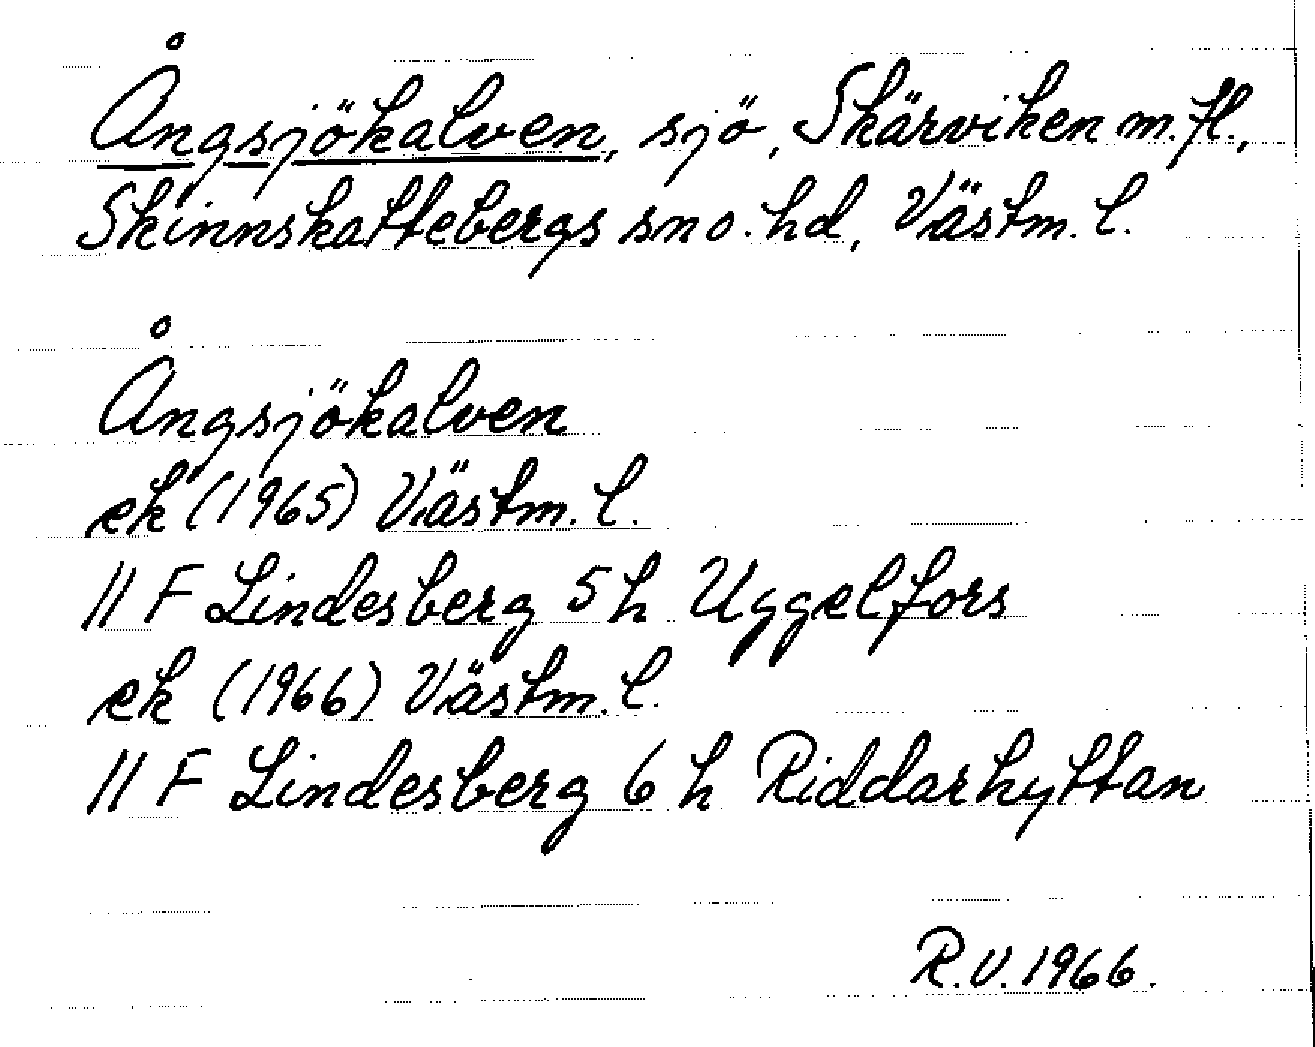 Ångsjökalven, sjö, Skärviken m.fl.,
Skinnskattebergs sn o. hd, Västm. l.
Ångsjökalven
ek (1965) Västm. l.
11 F Lindesberg 5 h Uggelfors
ek (1966) Västm. l.
11 F Lindesberg 6 h Riddarhyttan
R.V. 1966.